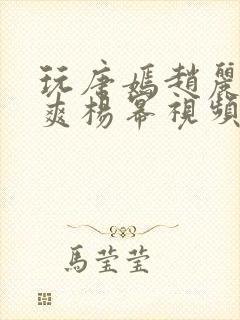 玩唐嫣趙麗
爽楊幂視頻
馬瑩瑩